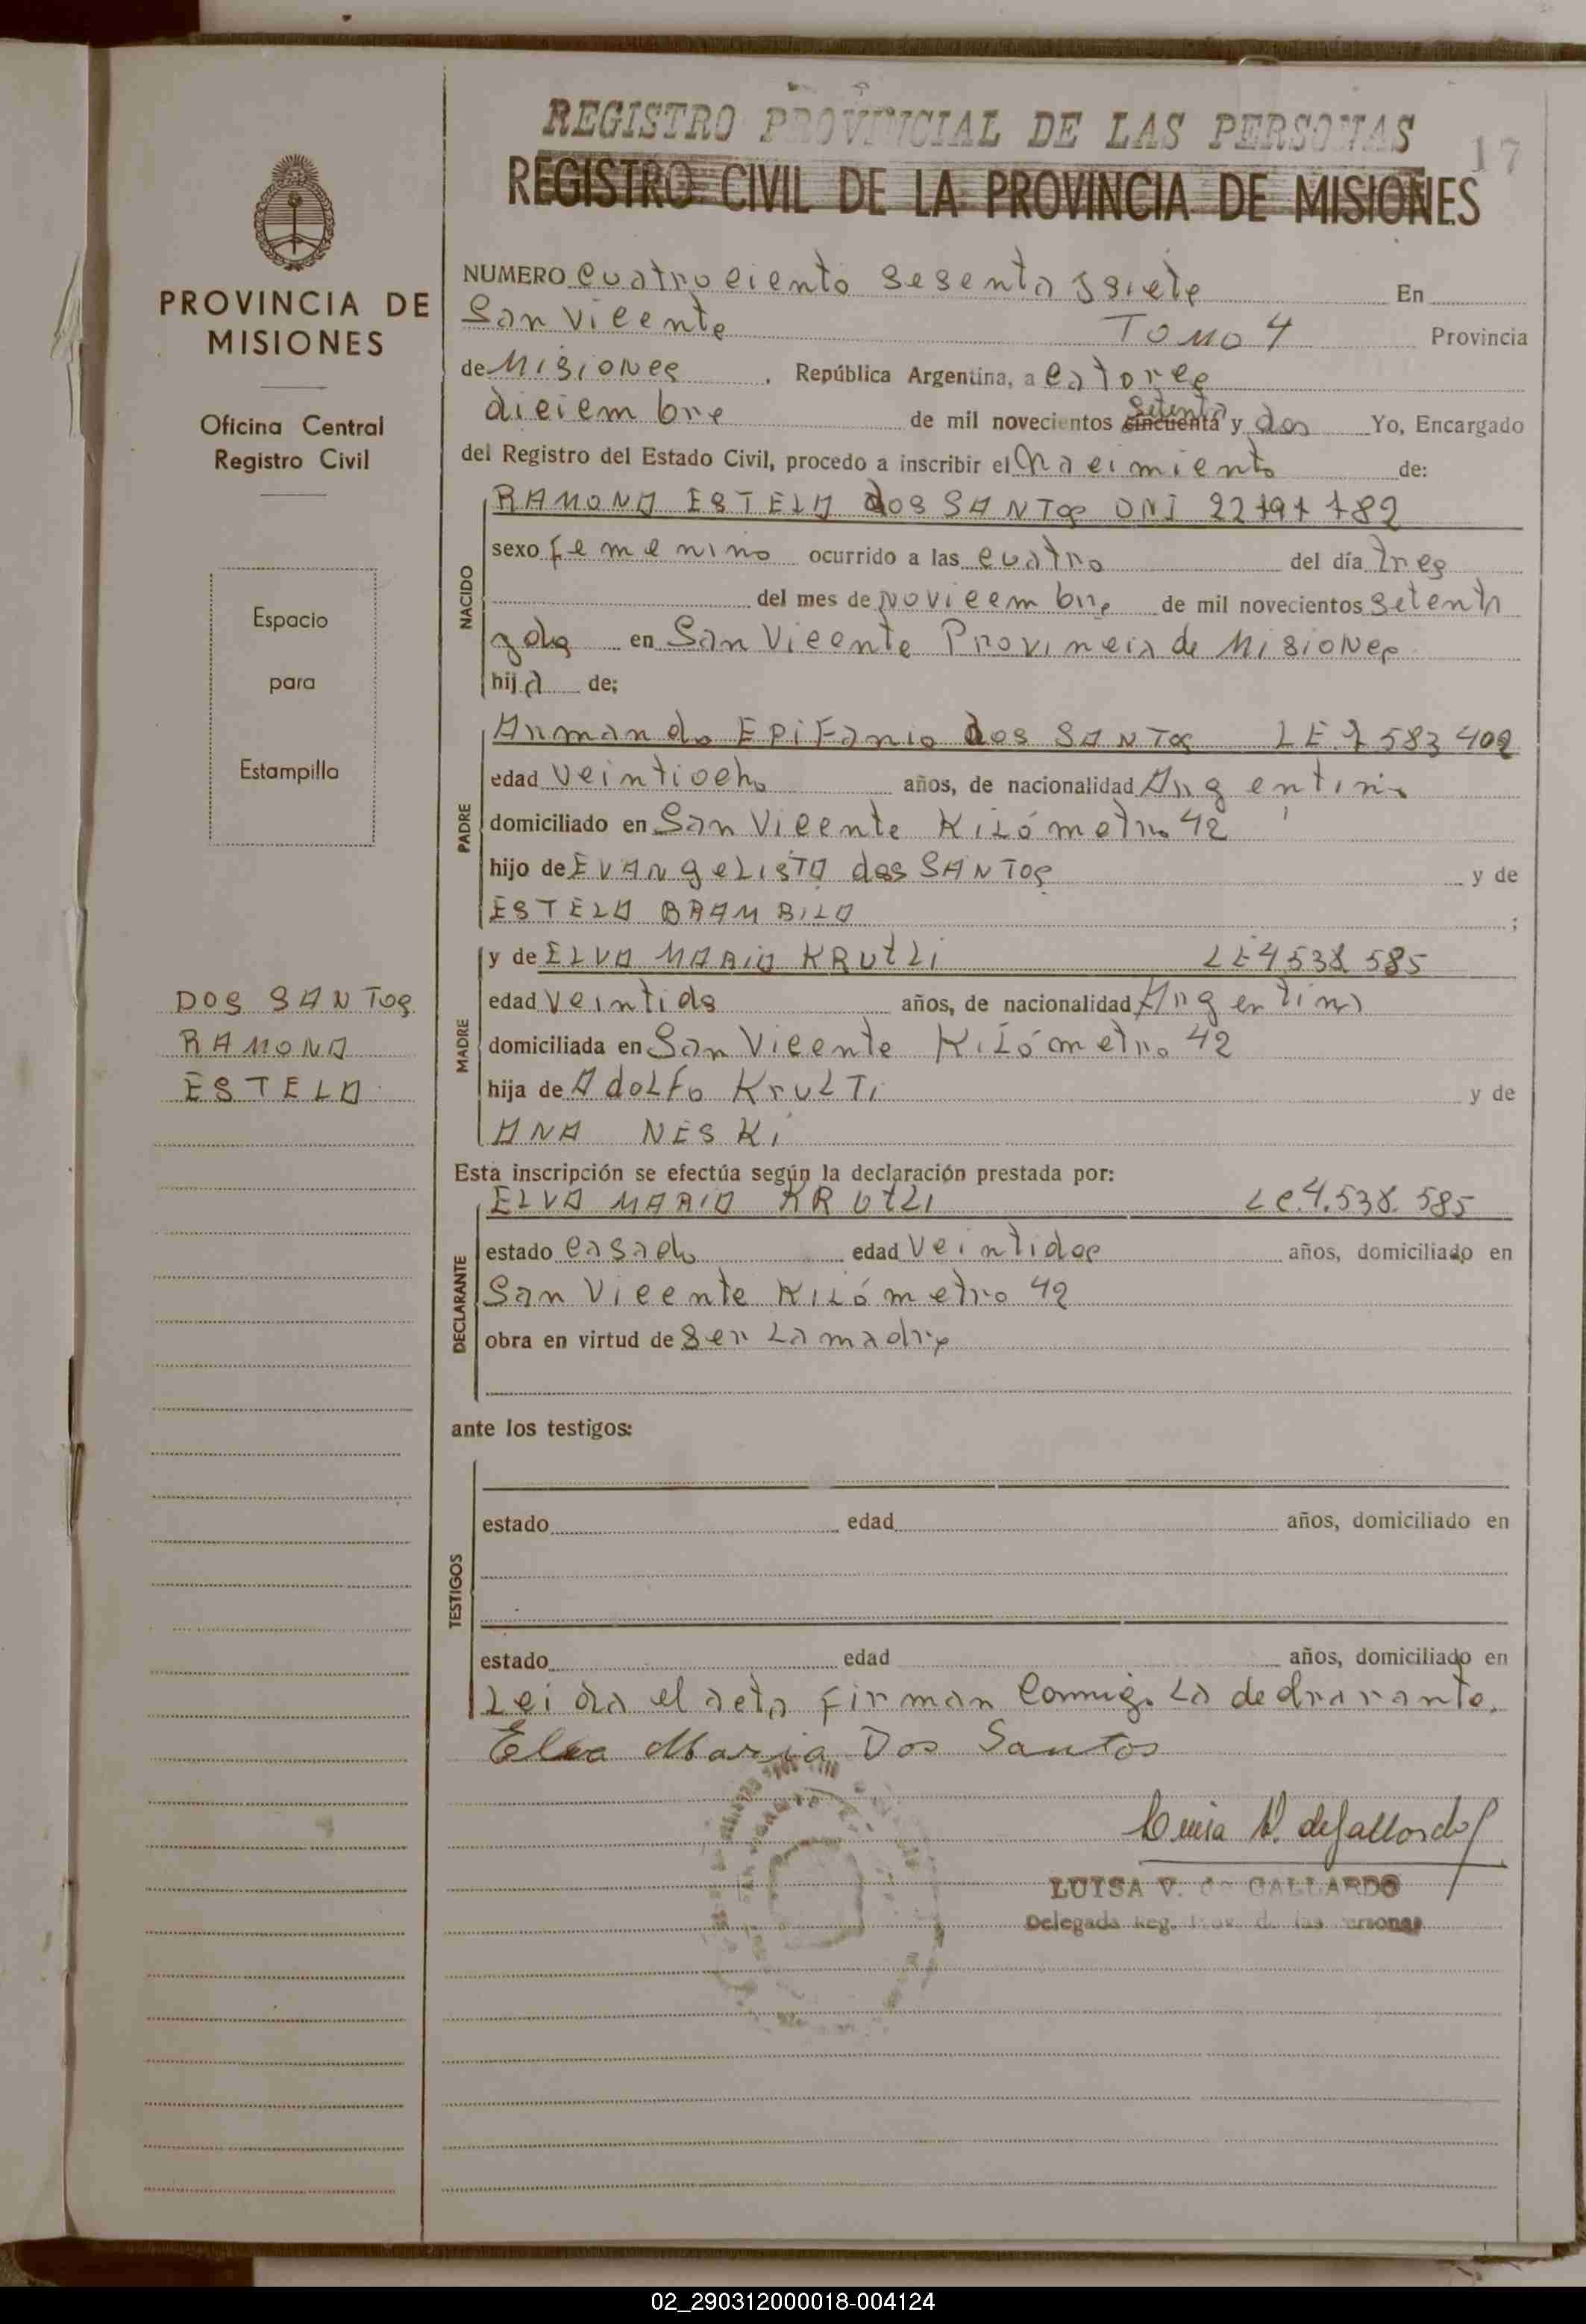 REGISTRO PROVINCIAL DE LAS PERSONAS
17
REGISTRO CIVIL DE LA PROVINCIA DE MISIONES
PROVINCIA DE
MISIONES
Oficina Central
Registro Civil
Espacio
para
Estampilla
DOS SANTOS
RAMONA
ESTELA
NUMERO cuatrociento sesenta y siete En
San Vicente TOMO 4 Provincia
de Misiones, República Argentina, a catorce
diciembre de mil novecientos cincuenta setenta y dos Yo, Encargado
del Registro del Estado Civil, procedo a inscribir el Nacimiento de:
NACIDO
RAMONA ESTELA dos SANTOS DNI
sexo femenino ocurrido a las cuatro del día tres
del mes de novieembre de mil novecientos setenta
y dos en San Vicente Provincia de Misiones
hija de;
PADRE
Armando EPiFanio dos SANTOS LE 7 583 402
edad veintiocho años, de nacionalidad Argentina
domiciliado en San Vicente Kilómetro 42
hijo de EVANgeLISTA dos SANTOS y de
ESTELA BRAMBILA ;
MADRE
y de ELVA MARIA KRUtLi LE 4 538 585
edad veintids años, de nacionalidad Argentina
domiciliada en San Vicente Kilómetro 42
hija de AdoLfo KruLTi y de
ANA NESKi
Esta inscripción se efectúa según la declaración prestada por:
DECLARANTE
ELVA MARIA KRUtLI Le.4.538.585
estado casado edad veintidos años, domiciliado en
San Vicente Kilómetro 42
obra en virtud de ser La madre
ante los testigos:
TESTIGOS
estado edad años, domiciliado en
estado edad años, domiciliado en
Leida el acta firman conmigo La declrarante.
Elva Maria Dos Santos
Luisa V. de Gallardo
LUISA V. de GALLARDO
Delegada Reg. Prov. de las Personas
02_290312000018-004124